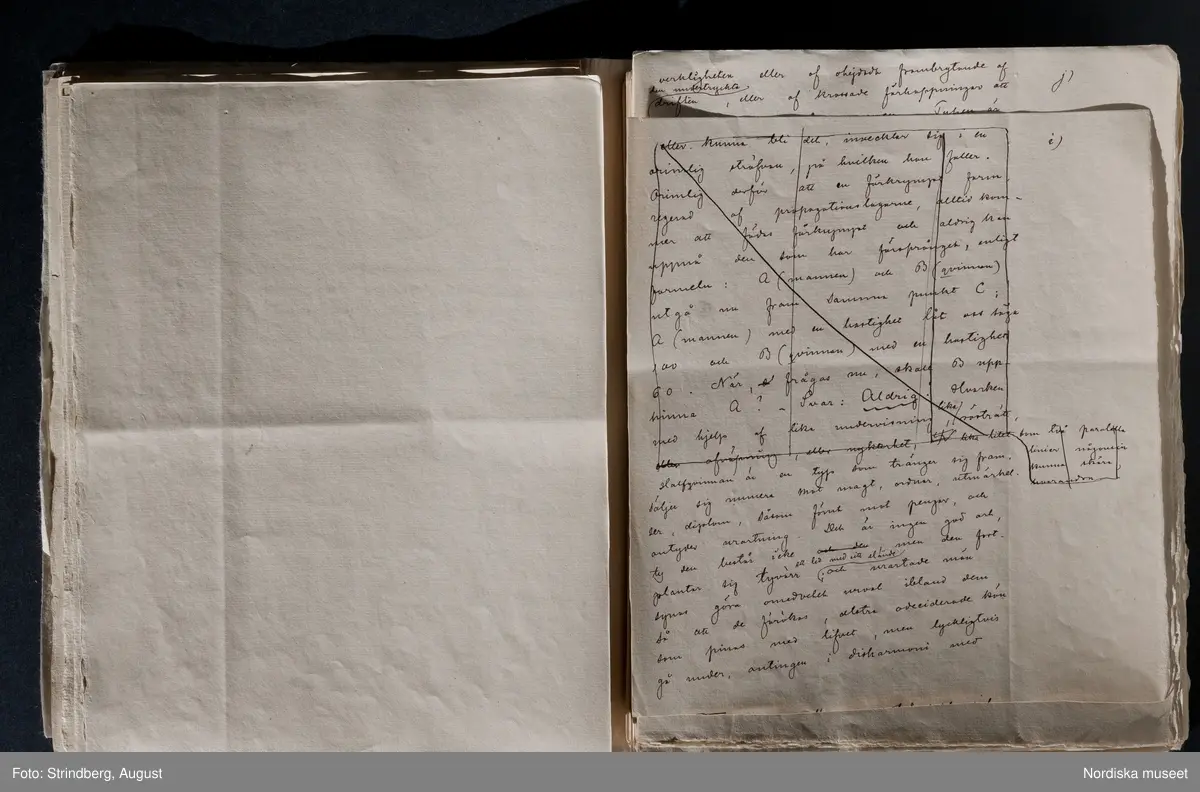 verkligheten eller af ohejdade frambrytande af
den undertryckta
driften, eller af krossade förhoppningar att
Typen är
j)
i)
eller kunna bli det, invecklar sig i en
orimlig sträfvan, på hvilken hon faller.
Orimlig derför att en förkrympt form,
regerad af propagationslagarne, alltid kom-
mer att födas förkrympt och aldrig kan
uppnå den som har försprånget, enligt
formeln: A (mannen) och B (qvinnan)
utgå nu från samma punkt C;
A (mannen) med en hastighet låt oss säga
100 och B (qvinnan) med en hastighet
60. När, frågas nu, skall B upp-
hinna A? – Svar: Aldrig! Hvarken
med hjelp af lika undervisning, lika rösträtt,
eller afväpning, eller nykterhet, lika litet som två parallela
linier någonsin
kunna skära
hvarandra
Halfqvinnan är en typ som tränger sig fram,
säljer sig numera mot magt, ordnar, utmärkel-
ser, diplom, såsom förut mot pengar, och
antyder urartning. Det är ingen god art,
ty den består icke och den men den fort-
plantar sig tyvärr ett led med sitt elände; och urartade män
synas göra omedvetet urval ibland dem
så att de förökas, alstra odeciderade kön
som pinas med lifvet, men lyckligtvis
gå under, antingen i disharmoni med
Foto: Strindberg, August
Nordiska museet